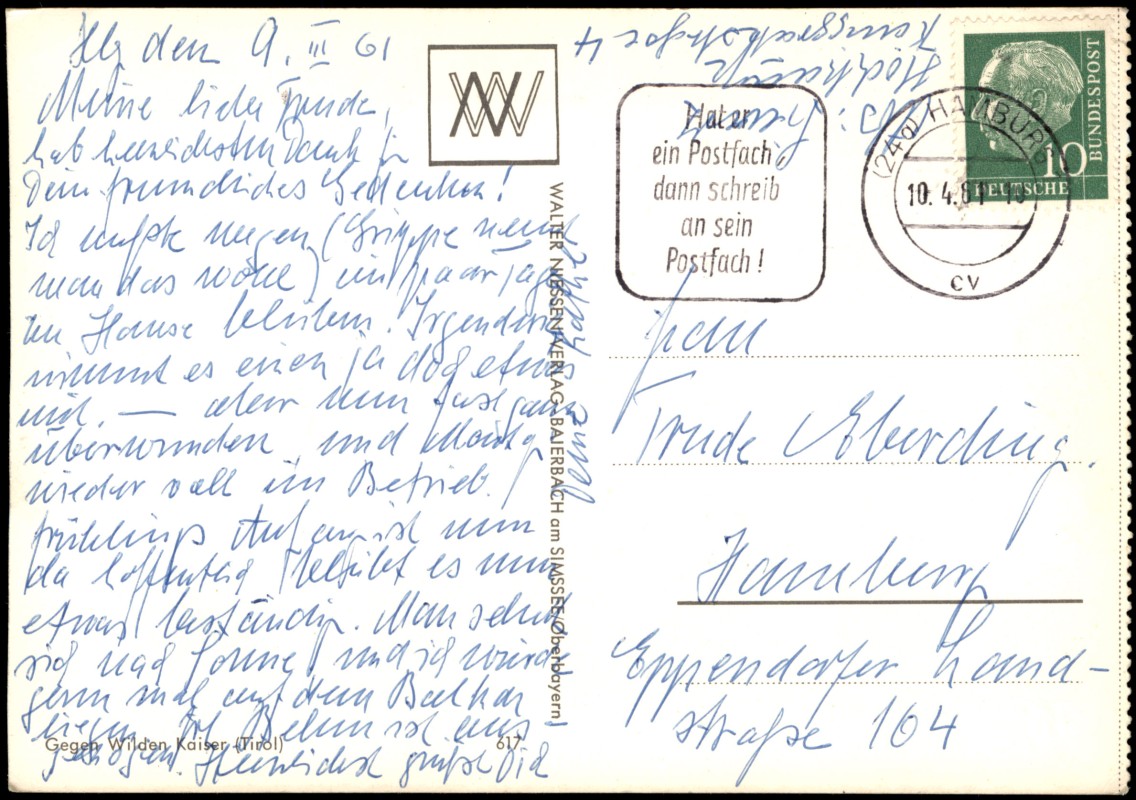 Hbg den 9. III 61
Meine liebe Trude,
hab herzlichsten Dank für
Dein freundliches Gedenken!
Ich mußte wegen (Grippe nennt
man das wohl) ein paar Tage
zu Hause bleiben. Irgendwie
nimmt es einen ja doch etwas
mit, — aber nun fast ganz
überwunden und
wieder voll im Betrieb.
Frühlings Anfang ist nun
da hoffentlich bleibt es nun
etwas beständig. Man sehnt
sich nach Sonne, und ich würde
gern mal auf dem Balkon
liegen. ist aus-
gezogen. Herzlichst grüßt Dich
Gegen Wilden Kaiser (Tirol)
617
WALTER NIESSEN VERLAG, BAIERBACH am SIMSSEE/Oberbayern
Hat er
ein Postfach,
dann schreib
an sein
Postfach!
(24a) HAMBURG
10. 4. 61
cv
10
DEUTSCHE
BUNDESPOST
Frau
Trude Eberding.
Hamburg
Eppendorfer Land-
straße 104